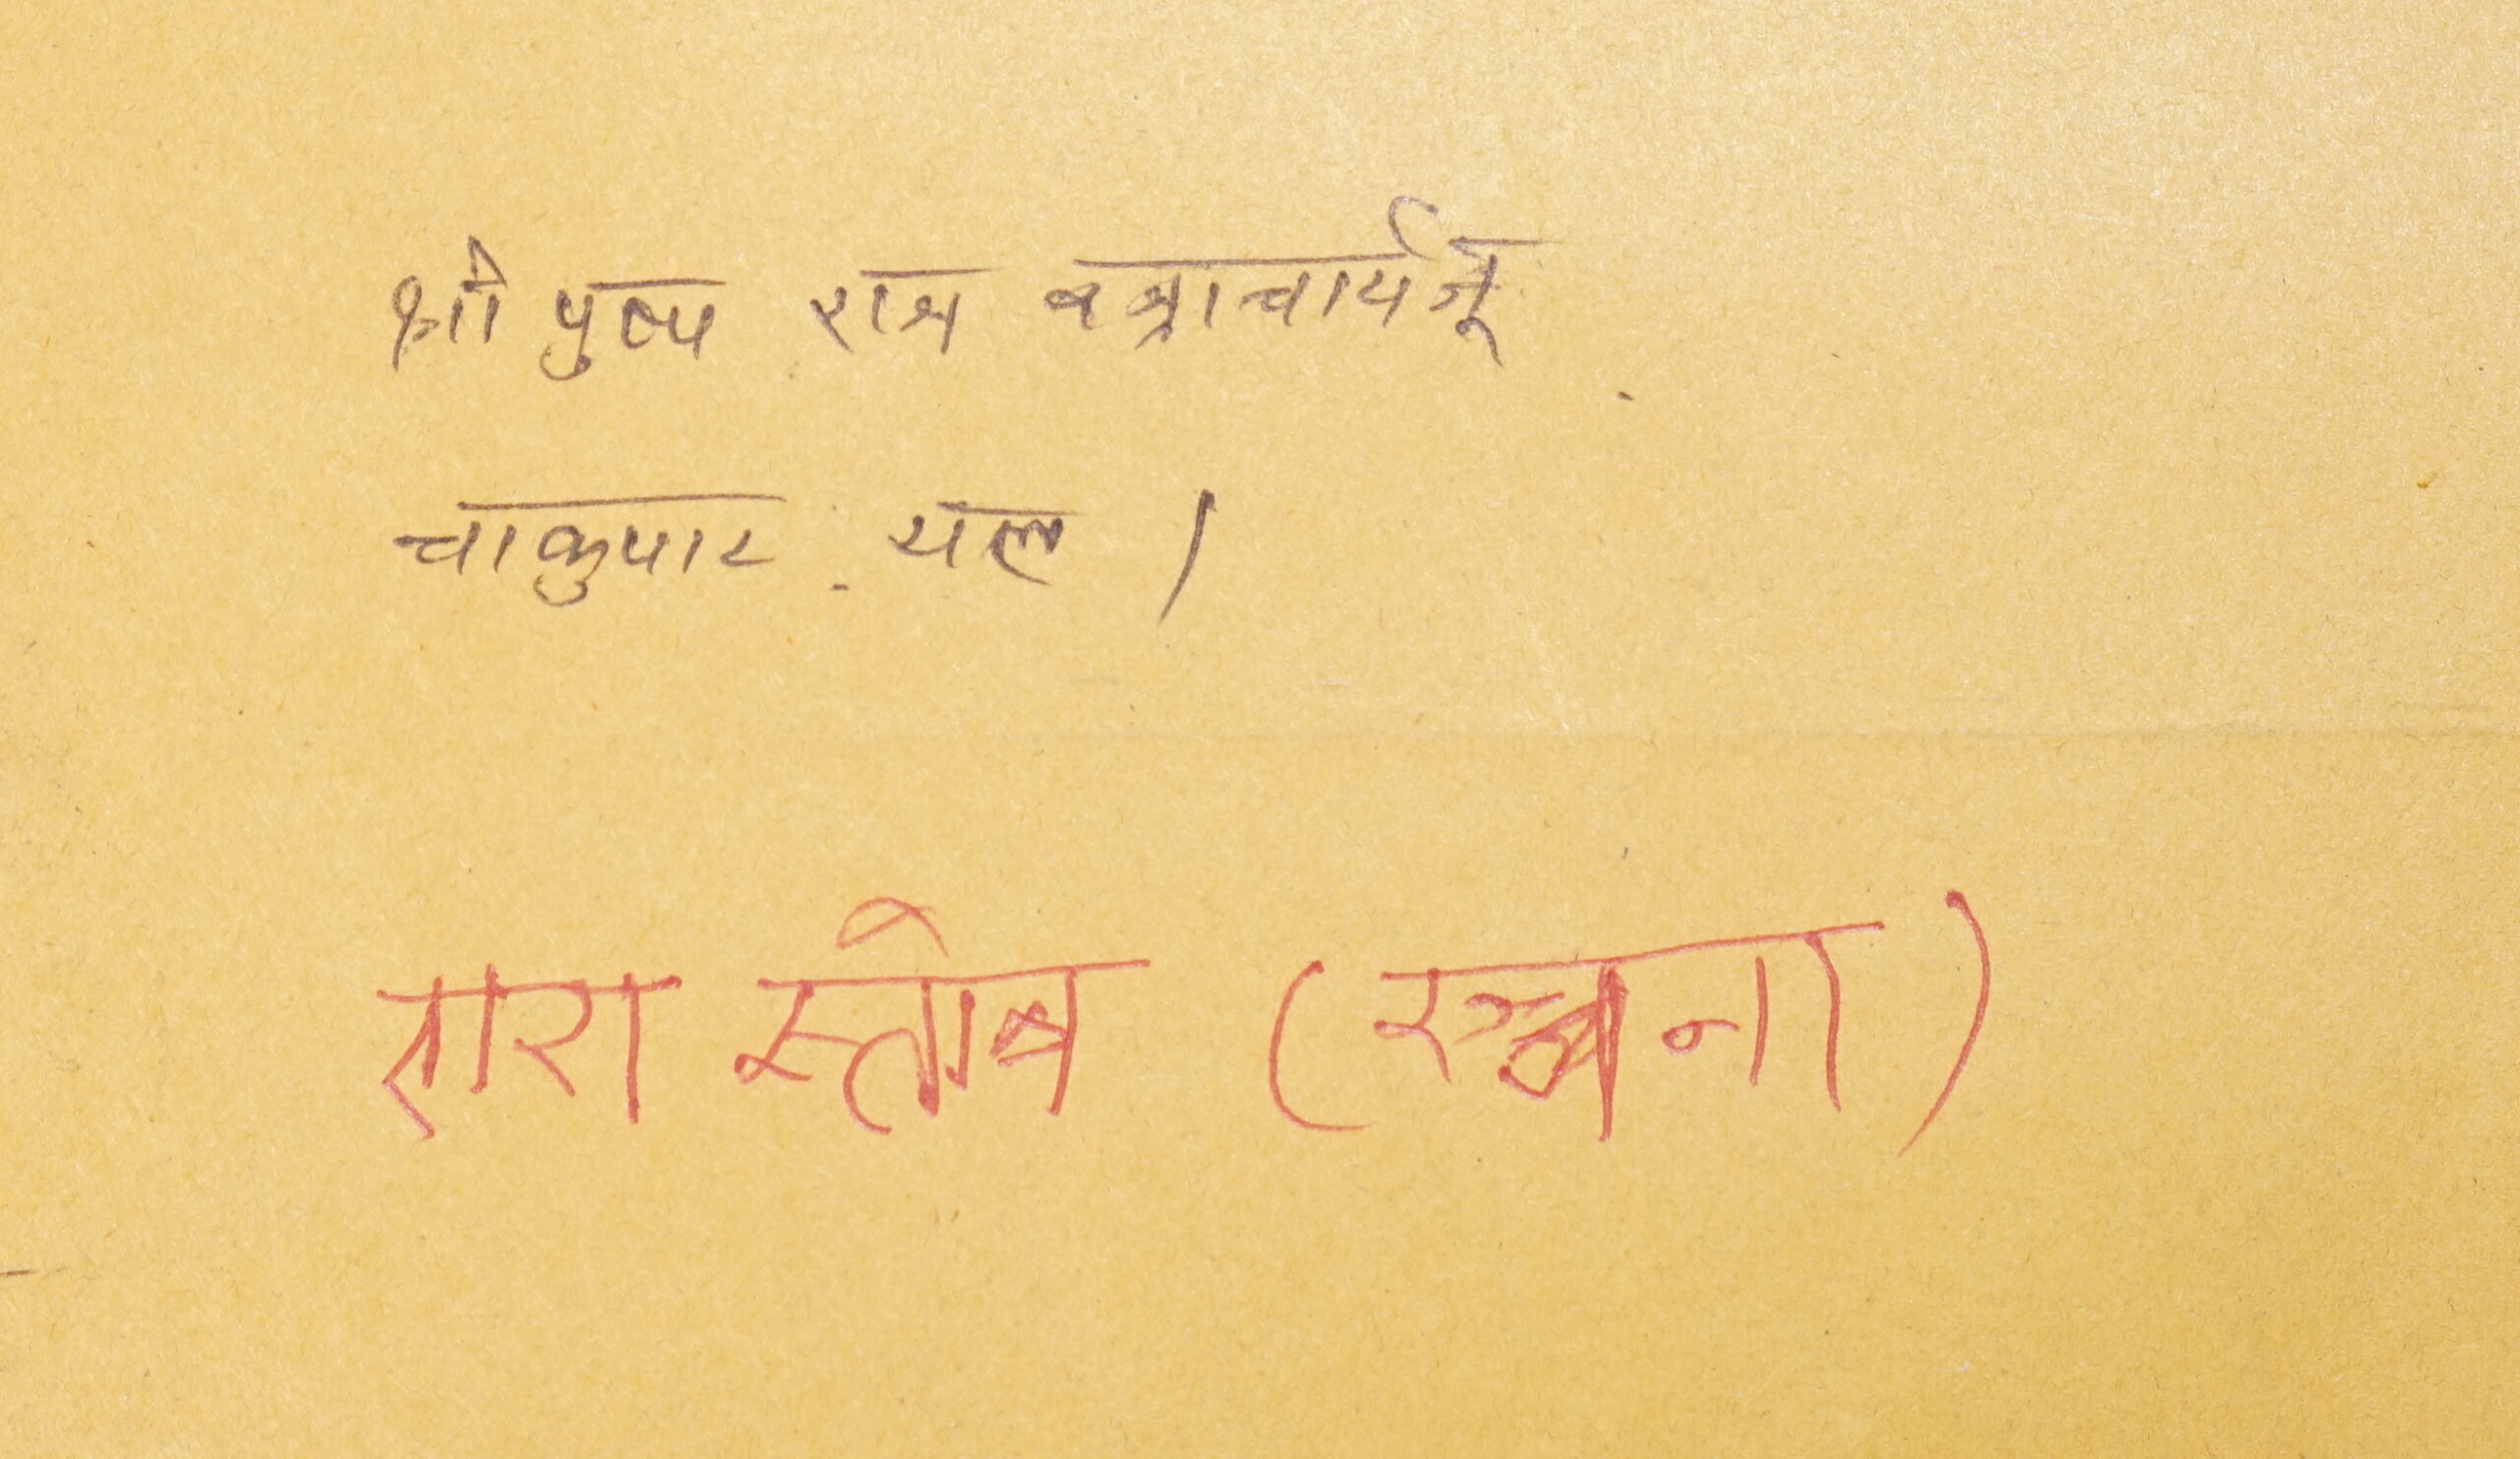 श्री पुष्प राज बज्राचार्यजू
चाकुपाट यल ।
तारा स्तोत्र (रचना)